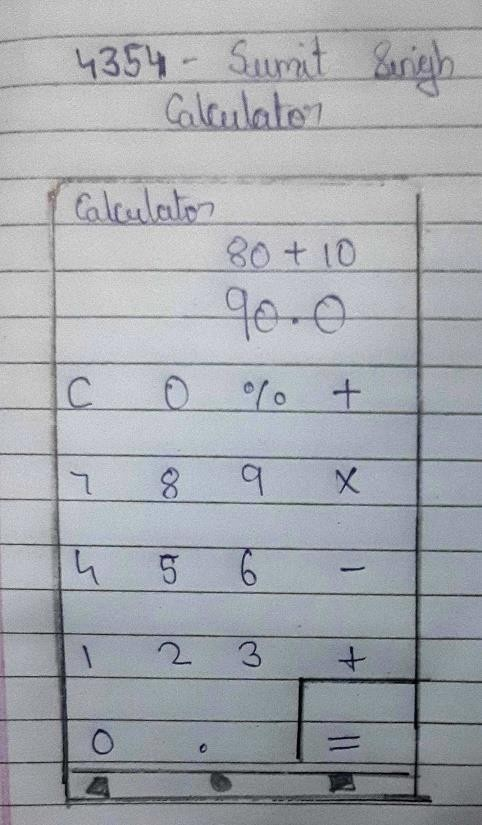 4354 - Sumit Singh
Calculator
Calculator
80 + 10
90.0
C 0 % +
7 8 9 X
4 5 6 -
1 2 3 +
0 . =